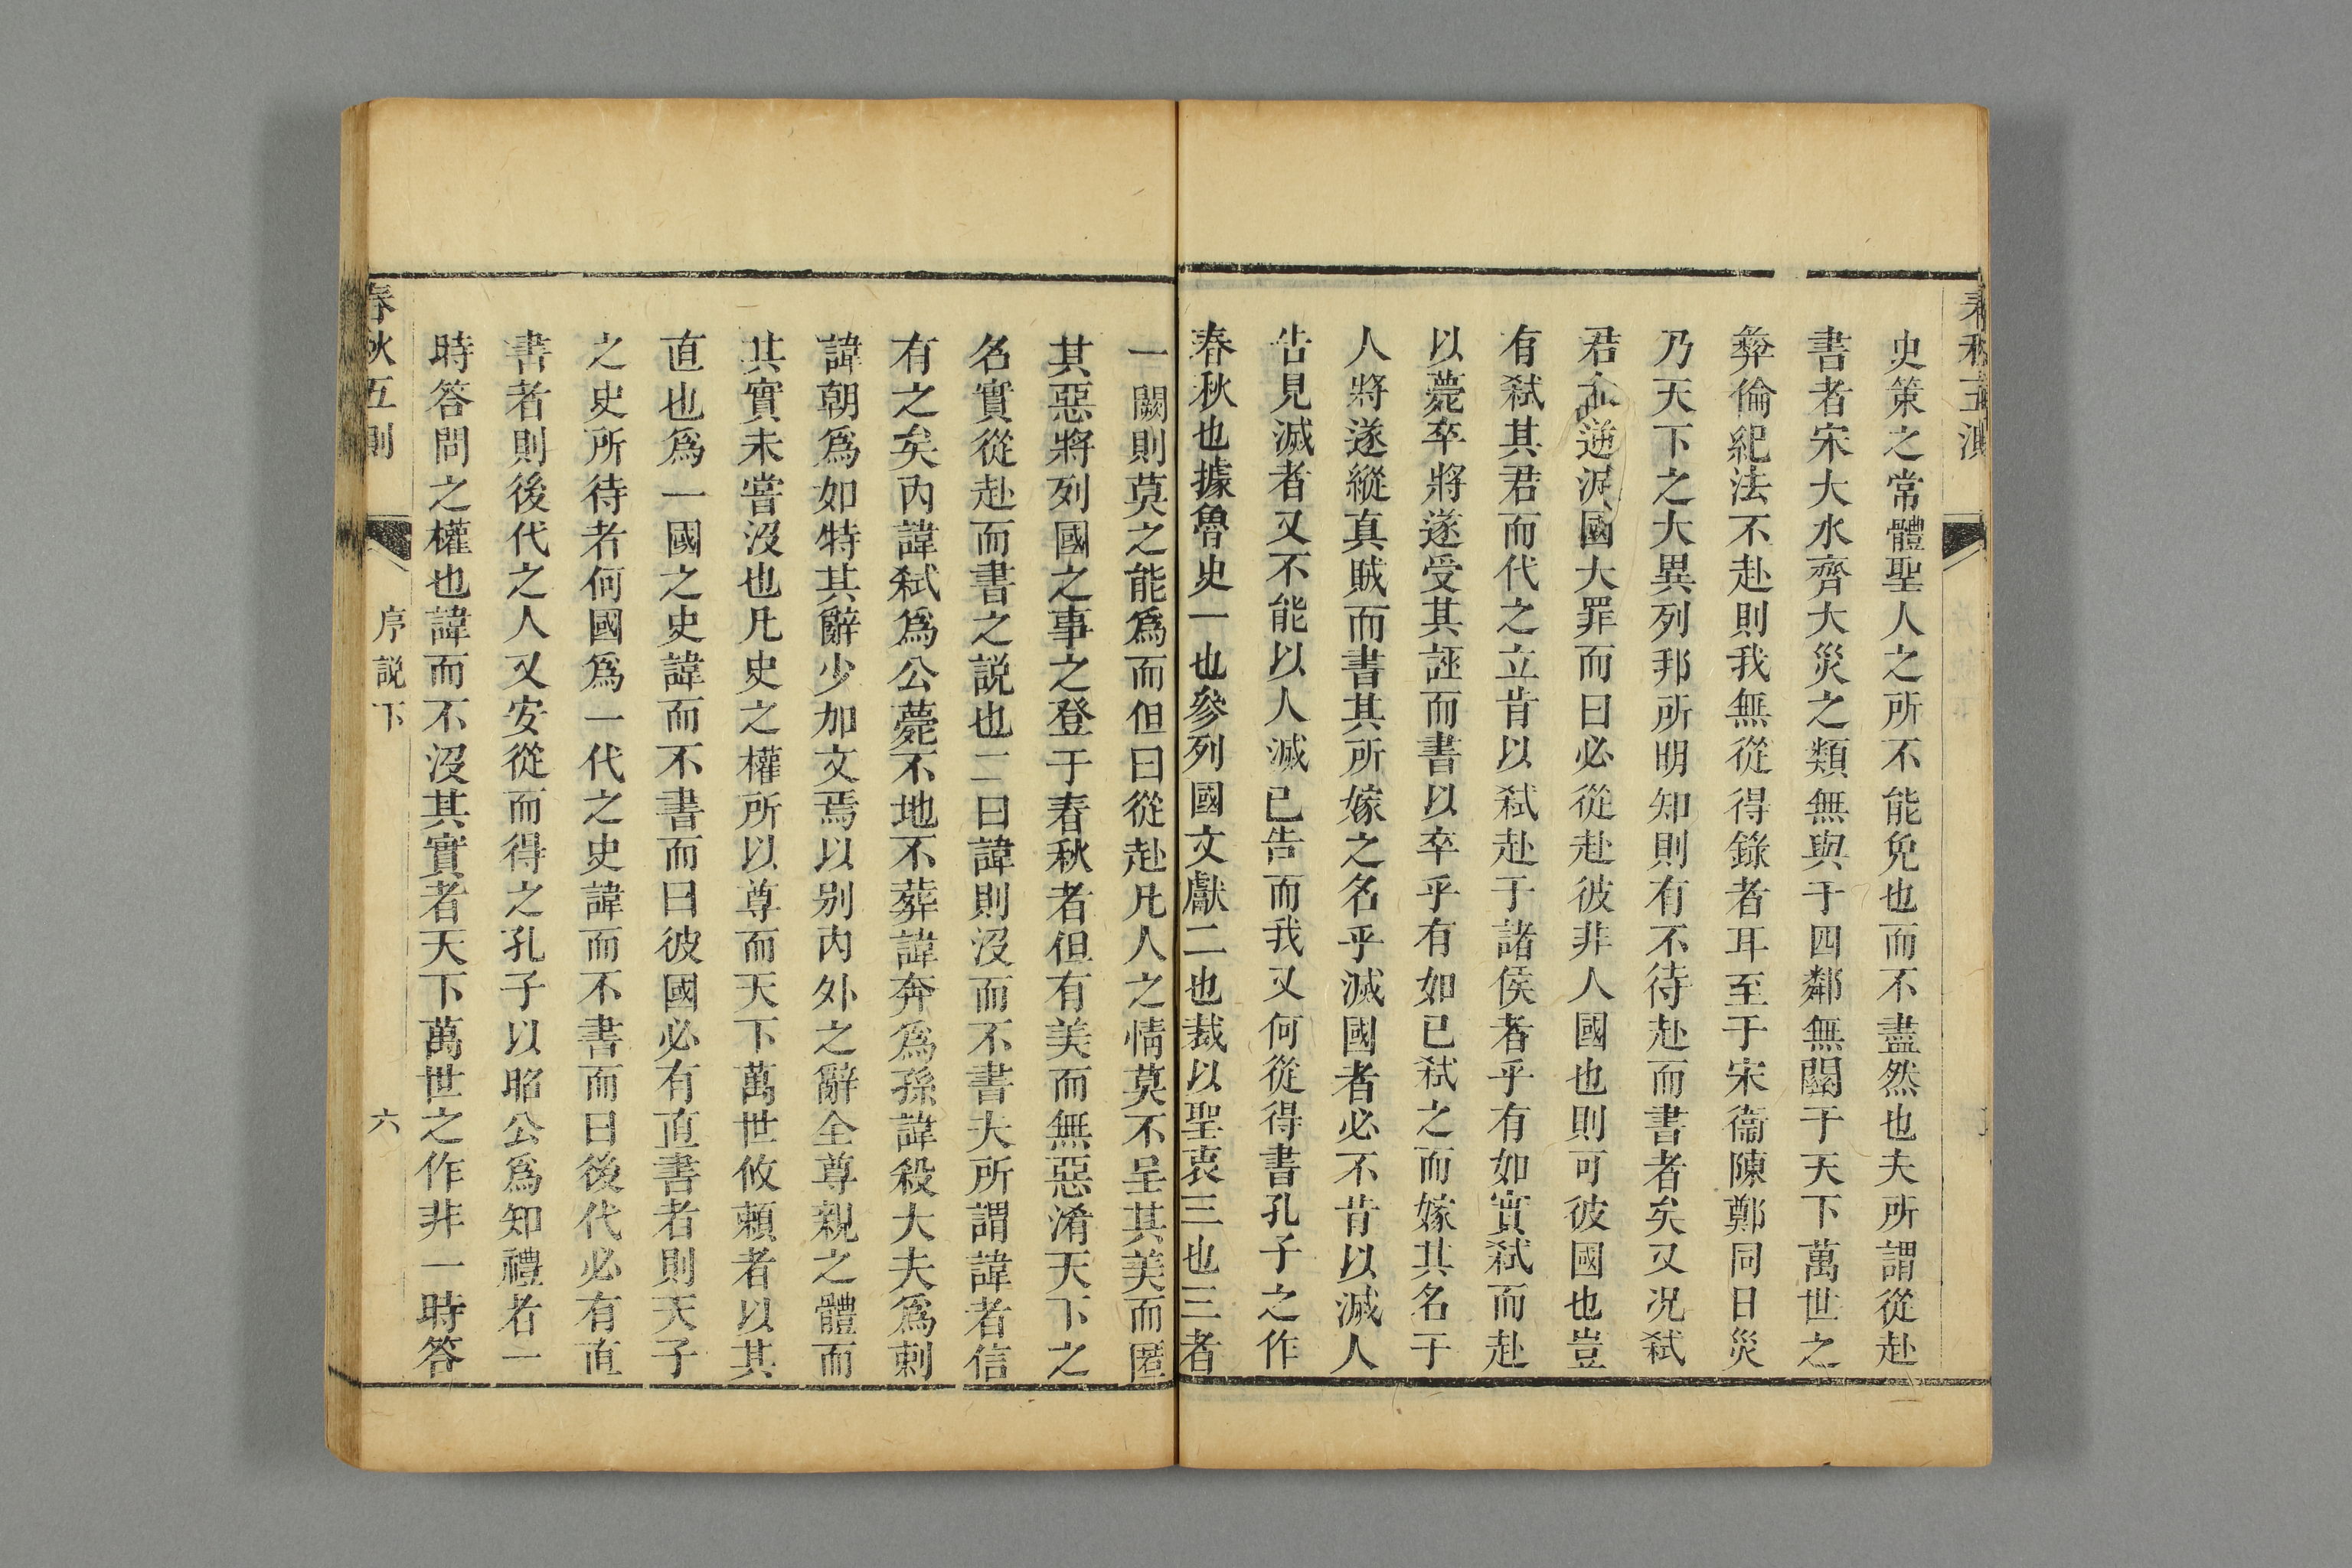 史策之常體聖人之所不能免也而不盡然也夫所謂從赴
書者宋大水齊大災之類無與于四鄰無關于天下萬世之
彝倫紀法不赴則我無從得錄者耳至于宋衞陳鄭同日災
乃天下之大異列邦所明知則有不待赴而書者矣又况弑
君逆滅國大罪而曰必從赴彼非人國也則可彼國也豈
有弑其君而代之立肯以弑赴于諸侯者乎有如實弑而赴
以薨卒將遂受其誣而書以卒乎有如已弑之而嫁其名于
人將遂縱真賊而書其所嫁之名乎滅國者必不肯以滅人
告見滅者又不能以人滅已告而我又何從得書孔子之作
春秋也據魯史一也參列國文獻二也裁以聖衷三也三者
一闕則莫之能爲而但曰從赴凡人之情莫不呈其美而匿
其惡將列國之事之登于春秋者但有美而無惡淆天下之
名實從赴而書之説也二曰諱則沒而不書夫所謂諱者信
有之矣内諱弑爲公薨不地不葬諱奔爲孫諱殺大夫爲刺
諱朝爲如特其辭少加文焉以别内外之辭全尊親之體而
其實未嘗沒也凡史之權所以尊而天下萬世攸賴者以其
直也爲一國之史諱而不書而曰彼國必有直書者則天子
之史所待者何國爲一代之史諱而不書而曰後代必有直
書者則後代之人又安從而得之孔子以昭公爲知禮者一
時答問之權也諱而不沒其實者天下萬世之作非一時答
春秋五則
序説下
六